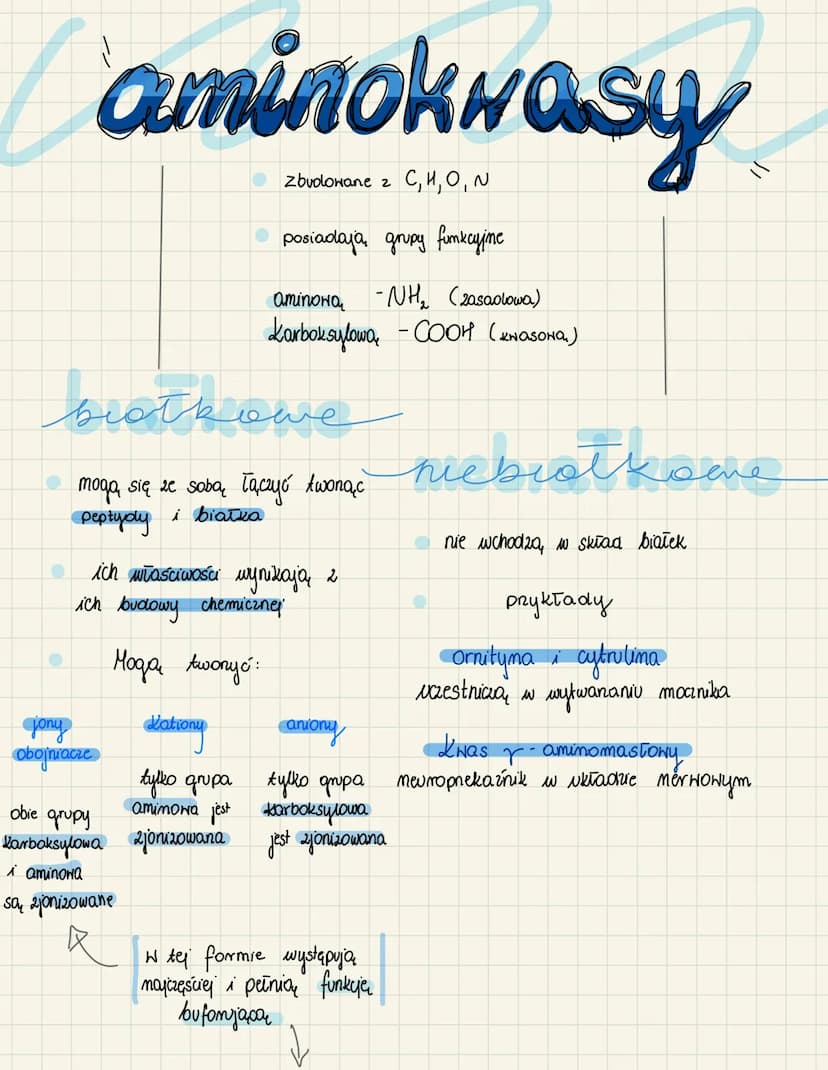 aminokwasy
zbudowane z C, H, O, N
posiadają grupy funkcyjne
aminową -NH₂ (zasadowa)
karboksylową -COOH (kwasową)
białkowe
mogą się ze sobą łączyć tworząc
peptydy i białka
ich właściwości wynikają z
ich budowy chemicznej
Mogą tworzyć:
jony
obojniacze
obie grupy
karboksylowa
i aminowa
są zjonizowane
kationy
tylko grupa
aminowa jest
zjonizowana
aniony
tylko grupa
karboksylowa
jest zjonizowana
W tej formie występują
najczęściej i pełnią funkcję
buforującą
niebiałkowe
nie wchodzą w skład białek
przykłady
ornityna i cytrulina
uczestniczą w wytwarzaniu mocznika
kwas γ-aminomasłowy
neuroprzekaźnik w układzie nerwowym